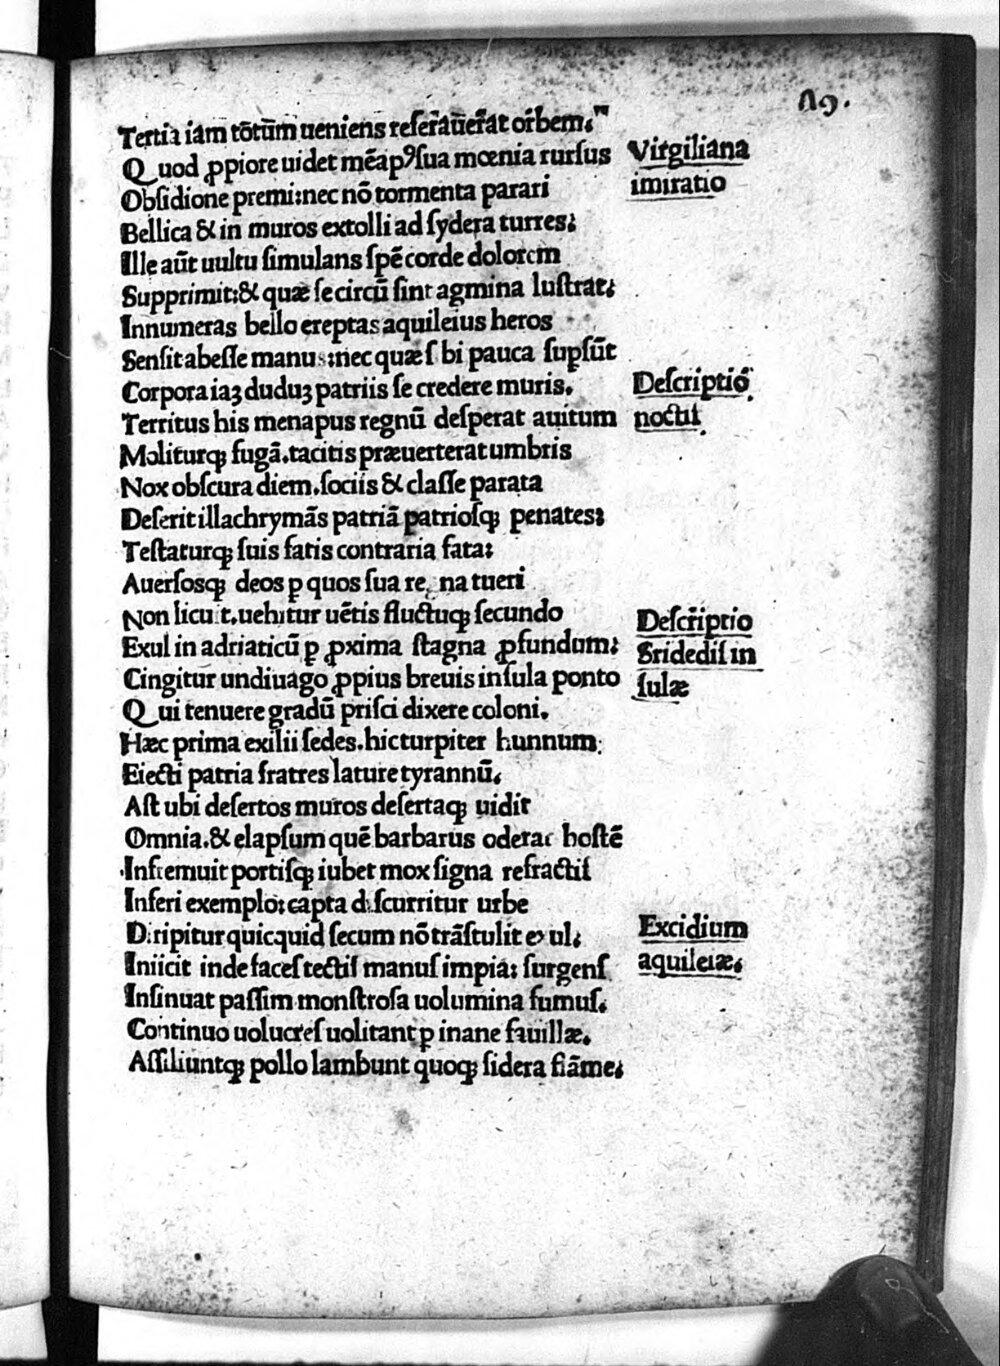 19.
Tertia iam tōtūm ueniens referāuerāt orbem.
Quod ꝓpiore uidet mēapꝰsua mœnia rursus
Obſidione premi:nec nō tormenta parari
Bellica & in muros extolli ad ſydera turres;
Ille aūt uultu ſimulans ſpē corde dolorem
Supprimit:& quæ ſe circū ſint agmina luſtrat;
Innumeras bello ereptas aquileius heros
Senſit abeſſe manus:nec quæ ſibi pauca ſupſūt
Corpora iaꝫ duduꝫ patriis ſe credere muris.
Territus his menapus regnū deſperat auitum
Moliturqꝫ fugā.tacitis præuerterat umbris
Nox obſcura diem.ſociis & claſſe parata
Deſerit illachrymās patriā patrioſqꝫ penates;
Teſtaturqꝫ ſuis fatis contraria fata:
Auerſosqꝫ deos ꝑ quos ſua regna tueri
Non licuit.uehitur uētis fluctuqꝫ ſecundo
Exul in adriaticū ꝑ ꝓxima ſtagna ꝓfundum;
Cingitur undiuago ꝓpius breuis inſula ponto
Qui tenuere gradū priſci dixere coloni.
Hæc prima exilii ſedes.hic turpiter hunnum:
Eiecti patria fratres lature tyrannū.
Aſt ubi deſertos muros deſertaqꝫ uidit
Omnia.& elapſum quē barbarus oderat hoſtē
Infremuit portiſqꝫ iubet mox ſigna refractiſ
Inferi exemplo:capta diſcurritur urbe
Diripitur quicquid ſecum nō trāſtulit exul;
Iniicit inde faceſ tectiſ manuſ impia: ſurgenſ
Inſinuat paſſim monſtroſa uolumina fumuſ.
Continuo uolucreſ uolitant ꝑ inane fauillæ.
Aſſiliuntqꝫ pollo lambunt quoqꝫ ſidera flāme;
Virgiliana
imiratio
Deſcriptio
noctiſ
Deſcriptio
Gridediſ in
ſulæ
Excidium
aquileiæ.